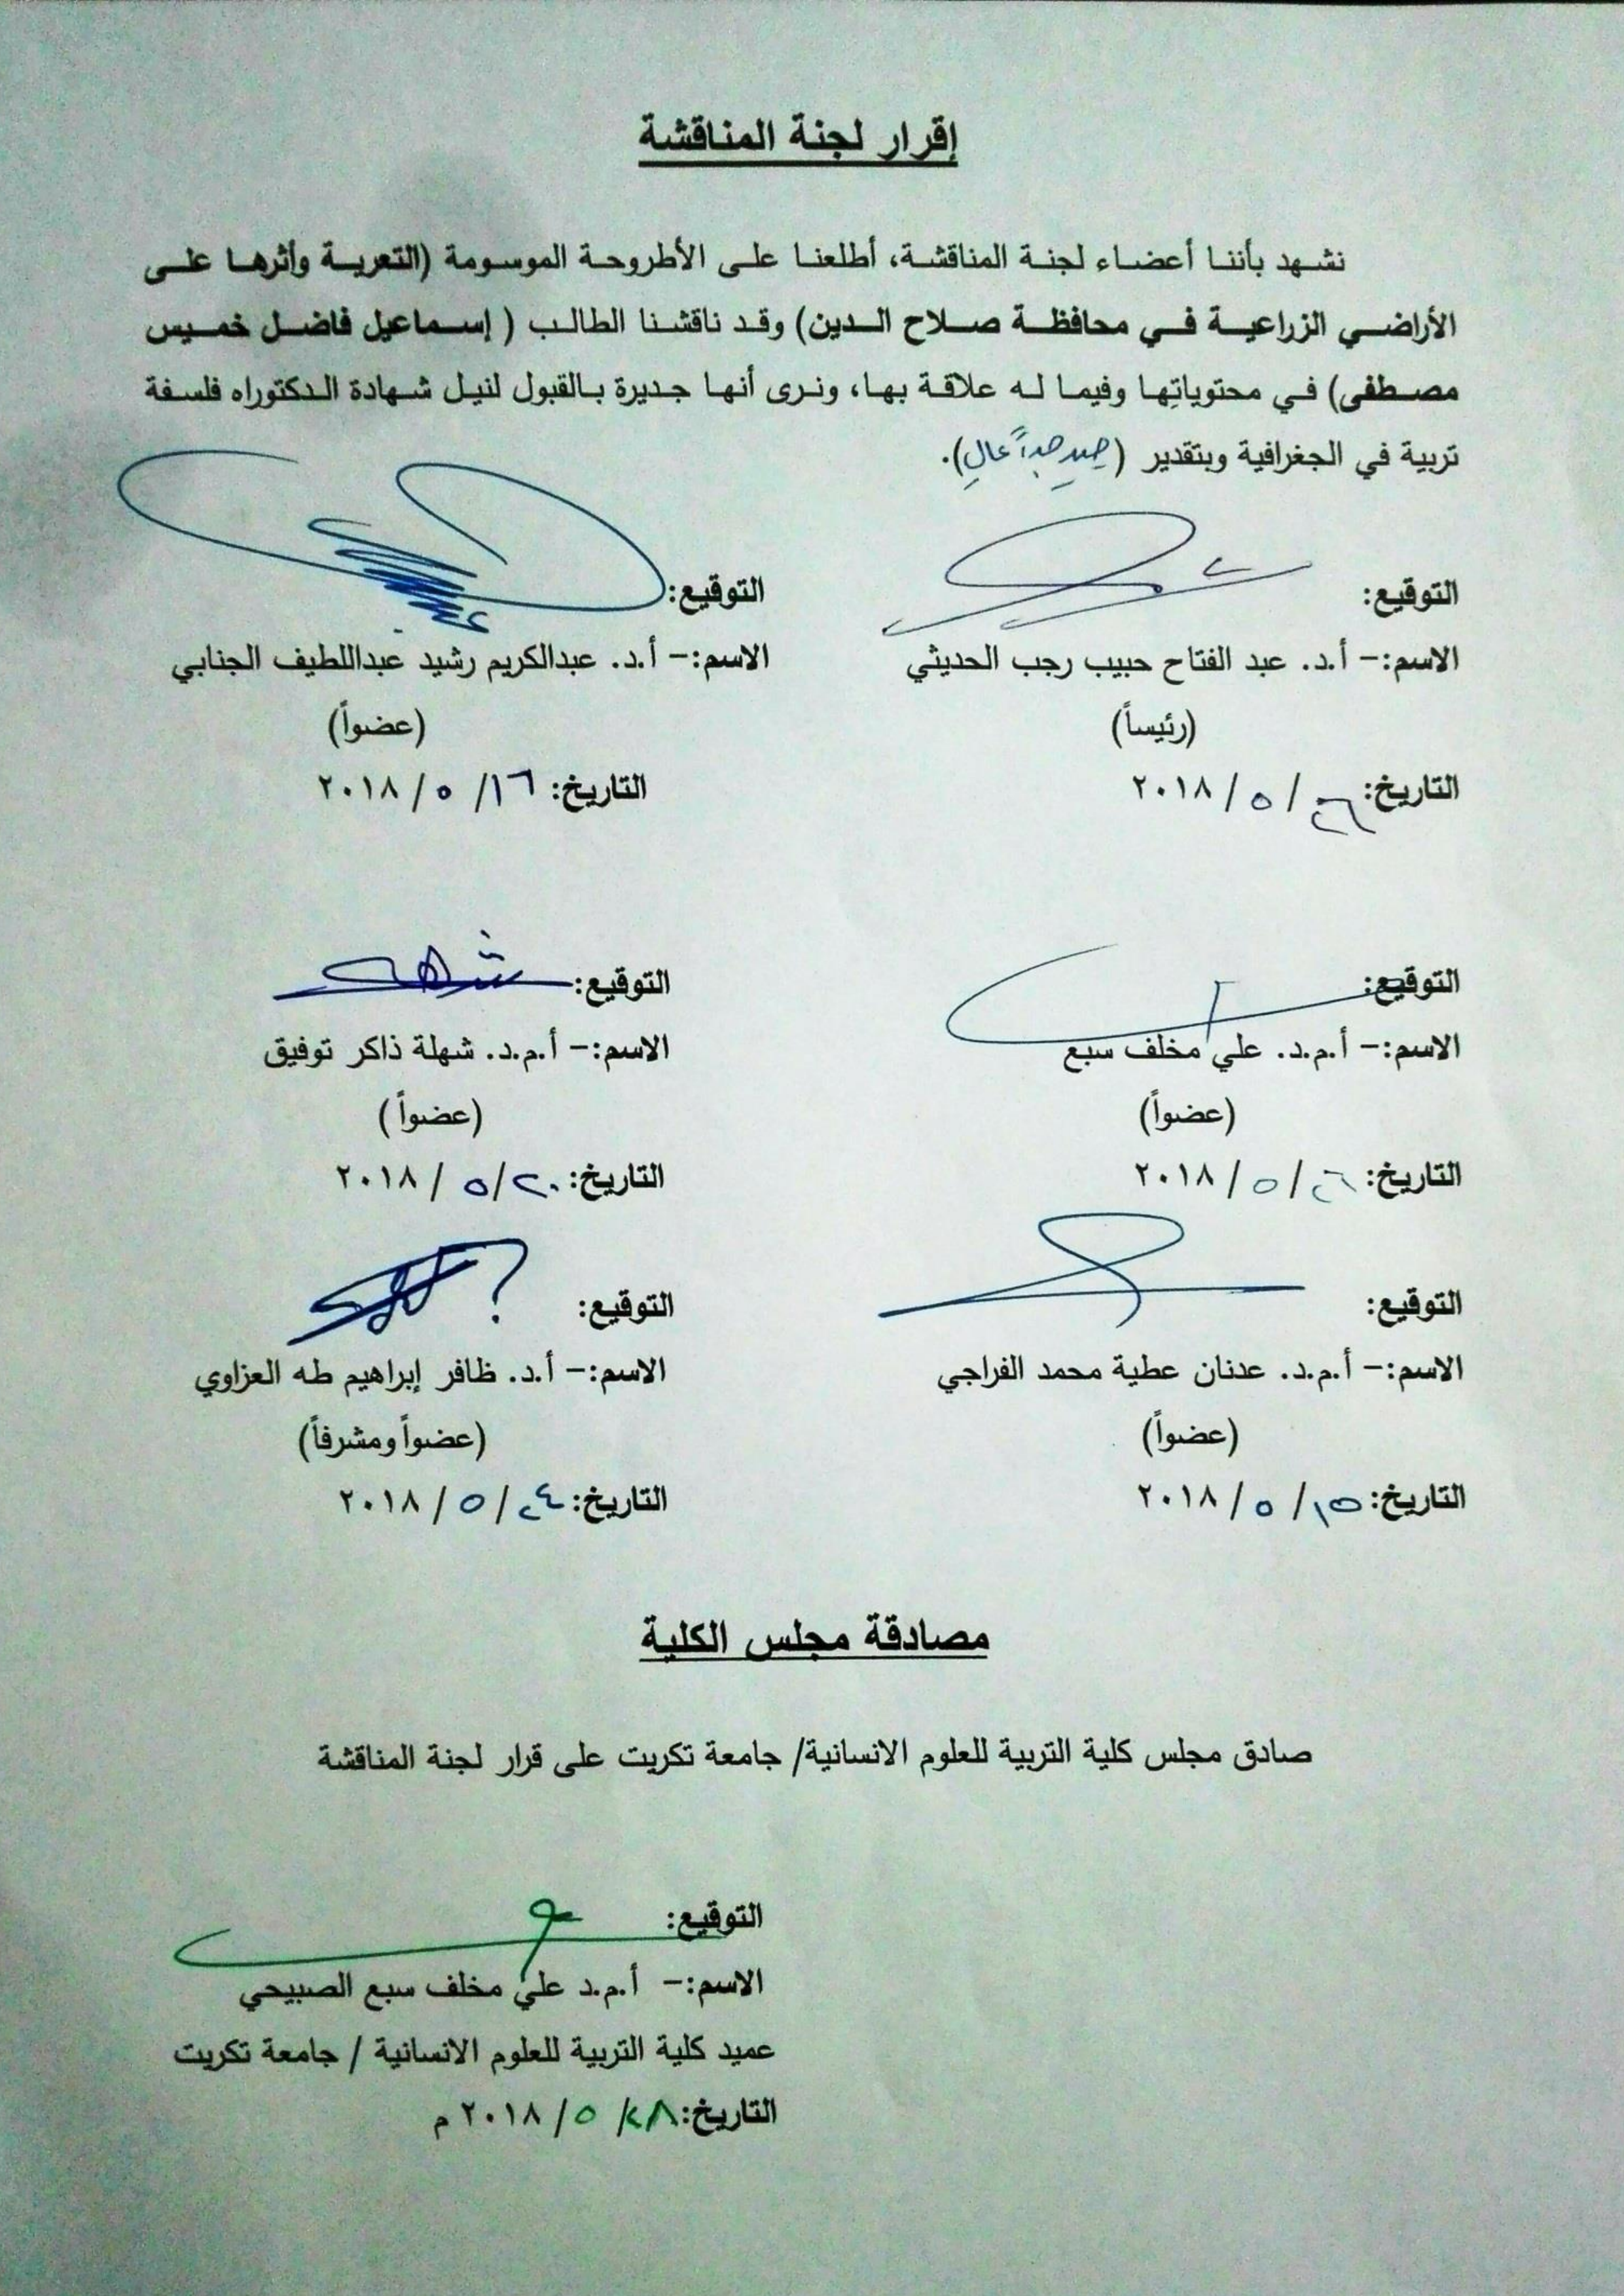 إقرار لجنة المناقشة
نشهد بأننا أعضاء لجنة المناقشة، أطلعنا على الأطروحة الموسومة (التعرية وأثرها على
الأراضي الزراعية في محافظة صلاح الدين) وقد ناقشنا الطالب ( إسماعيل فاضل خميس
مصطفى) في محتوياتها وفيما له علاقة بها، ونرى أنها جديرة بالقبول لنيل شهادة الدكتوراه فلسفة
تربية في الجغرافية وبتقدير (جيد جداً عالٍ).
التوقيع:
الاسم:- أ.د. عبد الفتاح حبيب رجب الحديثي
(رئيساً)
التاريخ: ٢٦ / ٥ / ٢٠١٨
التوقيع:
الاسم:- أ.د. عبدالكريم رشيد عبداللطيف الجنابي
(عضواً)
التاريخ: ١٦ / ٥ / ٢٠١٨
التوقيع:
الاسم:- أ.م.د. علي مخلف سبع
(عضواً)
التاريخ: ٢٦ / ٥ / ٢٠١٨
التوقيع:
الاسم:- أ.م.د. شهلة ذاكر توفيق
(عضواً )
التاريخ: ٢٠ / ٥ / ٢٠١٨
التوقيع:
الاسم:- أ.م.د. عدنان عطية محمد الفراجي
(عضواً)
التاريخ: ١٥ / ٥ / ٢٠١٨
التوقيع:
الاسم:- أ.د. ظافر إبراهيم طه العزاوي
(عضواً ومشرفاً)
التاريخ: ٢٤ / ٥ / ٢٠١٨
مصادقة مجلس الكلية
صادق مجلس كلية التربية للعلوم الانسانية/ جامعة تكريت على قرار لجنة المناقشة
التوقيع:
الاسم:- أ.م.د علي مخلف سبع الصبيحي
عميد كلية التربية للعلوم الانسانية / جامعة تكريت
التاريخ: ٢٨ / ٥ / ٢٠١٨ م